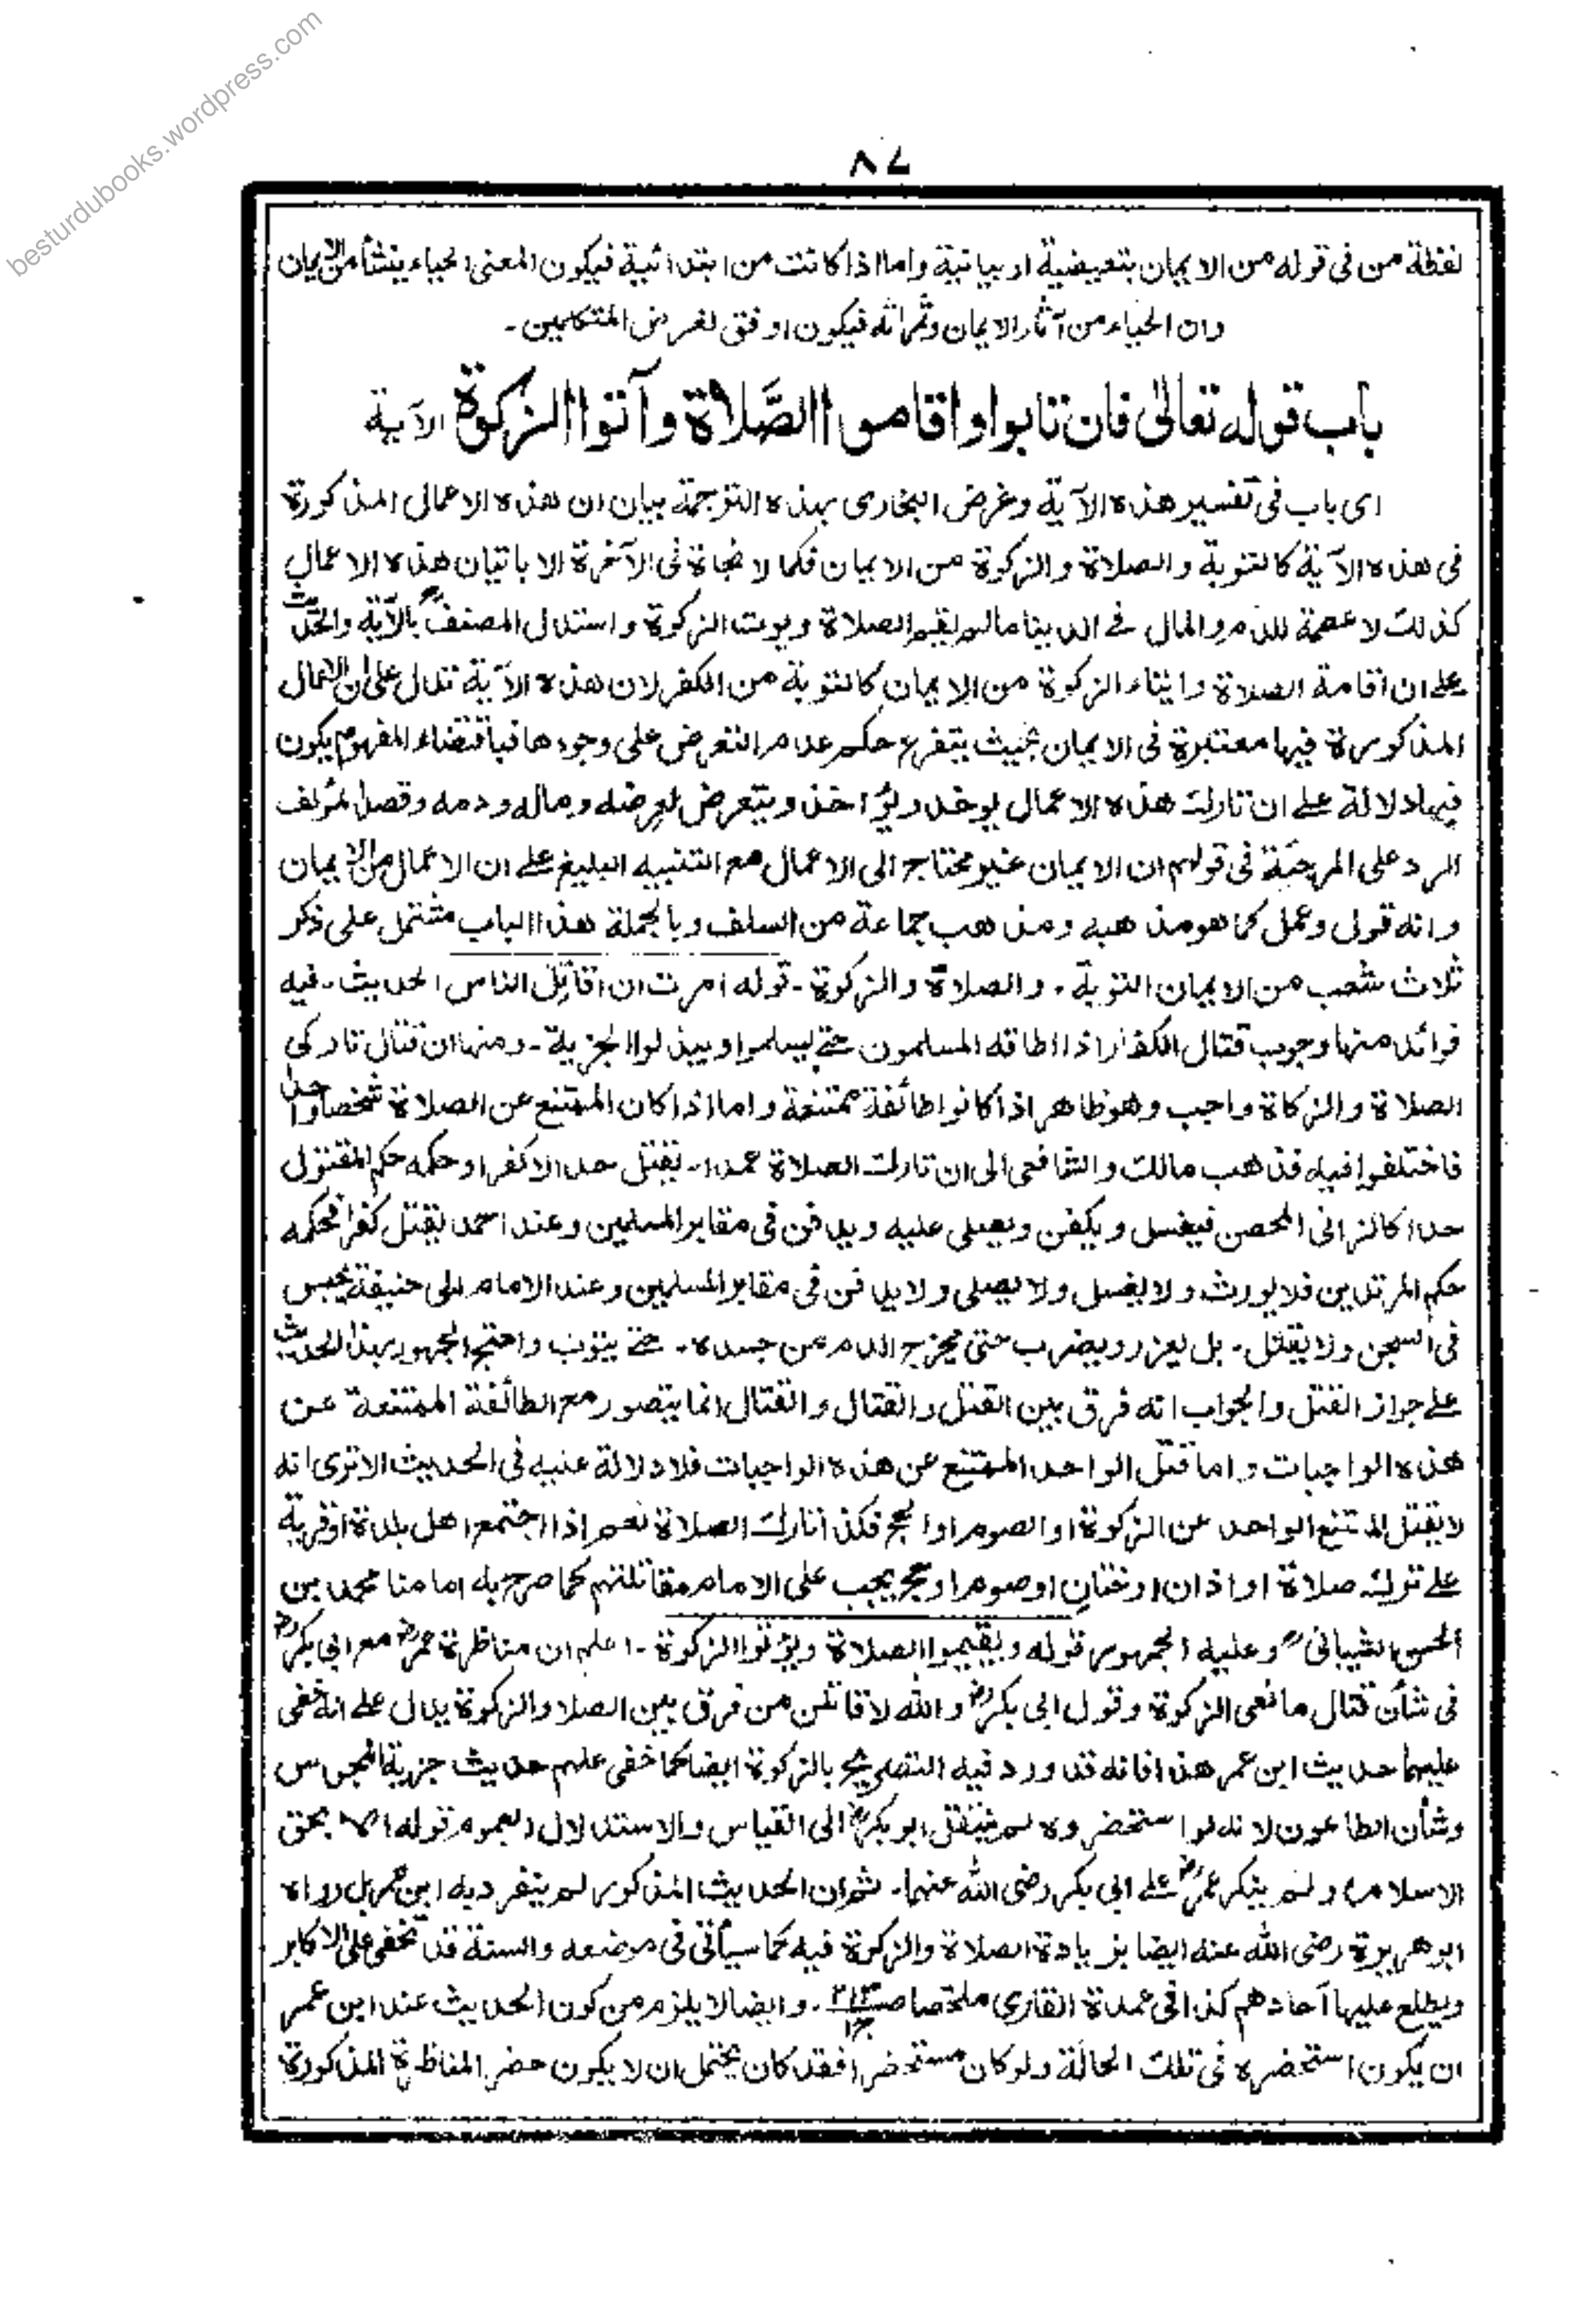 besturdubooks.wordpress.com
٨٧
لفظة من فى قوله من الايمان بتعيضية او بيانية واما اذا كانت من ابتدائية فيكون المعنى الحياء ينشأ من الايمان
وان الحياء من آثار الايمان وثمراته فيكون اوفق لغرض المتكلمين۔
باب قوله تعالىٰ فان تابوا واقاموا الصَّلاة وآتوا الزكوة الآية
اى باب فى تفسير هذه الآية وغرض البخارى بهذه الترجمة بيان ان هذه الاعمال المذكورة
فى هذه الآية كالتوبة والصلاة والزكوة من الايمان فكما لا نجاة فى الآخرة الا باتيان هذه الاعمال
كذلك لا عصمة للدم والمال فے الدينا مالم يقم الصلاة ويوت الزكوة واستدل المصنف بالآية والحديث
علے ان اقامة الصلاة وايتاء الزكوة من الايمان كالتوبة من الكفر لان هذه الآية تدل على ان الاعمال
المذكورة فيها معتبرة فى الايمان بحيث يتفرع حكم عدم التعرض على وجودها فباقتضاء المفهوم يكون
فيها دلالة علے ان تارك هذه الاعمال يوخذ ويؤاخذ ويتعرض لعرضه وماله ودمه وقصد المؤلف
الرد على المرجئة فى قولهم ان الايمان غير محتاج الى الاعمال مع التنبيه البليغ علے ان الاعمال من الايمان
وانه قول وعمل كما هو مذهبه ومذهب جماعة من السلف وبالجملة هذا الباب مشتمل على ذكر
ثلاث شعب من الايمان التوبة۔ والصلاة والزكوة۔ قوله امرت ان اقاتل الناس الحديث۔ فيه
فوائد منها وجوب قتال الكفار اذا اطاقه المسلمون حتے يسلموا ويبذلوا الجزية۔ ومنها ان قتال تاركى
الصلاة والزكاة واجب وهو ظاهر اذا كانوا طائفة ممتنعة واما اذا كان الممتنع عن الصلاة شخصا واحدا
فاختلفوا فيه فذهب مالك والشافعى الى ان تارك الصلاة عمدا۔ يقتل حدا لا كفرا وحكمه حكم المقتول
حدا كالزانى المحصن فيغسل ويكفن ويصلى عليه ويدفن فى مقابر المسلمين وعند احمد يقتل كفرا فحكمه
حكم المرتدين فلا يورث ولا يغسل ولا يصلى ولا يدفن فى مقابر المسلمين وعند الامام ابى حنيفة يحبس
فى السجن ولا يقتل۔ بل يعزر ويضرب حتى يخرج الدم من جسده۔ حتے يتوب واحتج الجمهور بهذا الحديث
علے جواز القتل والجواب انه فرق بين القتل والقتال والقتال انما يتصور مع الطائفة الممتنعة عن
هذه الواجبات واما قتل الواحد الممتنع عن هذه الواجبات فلا دلالة عليه فى الحديث الا ترى انه
لا يقتل الممتنع الواحد عن الزكوة او الصوم او الحج فكذا تارك الصلاة نعم اذا اجتمع اهل بلدة او قرية
علے ترك صلاة او اذان او ختان او صوم او حج يجب على الامام مقاتلتهم كما صرح به امامنا محمد بن
الحسن الشيبانى وعليه الجمهور قوله ويقيموا الصلاة ويؤتوا الزكوة۔ اعلم ان مناظرة عمر رض مع ابى بكر رض
فى شأن قتال مانعى الزكوة وقول ابى بكر رض والله لاقاتلن من فرق بين الصلا والزكوة يدل علے انه خفى
عليهما حديث ابن عمر هذا فانه قد ورد فيه التصريح بالزكوة ايضا كما خفى علهم حديث جزية المجوس
وشأن الطاعون لانه لو استحضروه لم ينتقل ابو بكر رض الى القياس والاستدلال بعموم قوله (الا بحق
الاسلام) ولم ينكر عمر رض علے ابى بكر رضى الله عنهما۔ ثم ان الحديث المذكور لم يتفرد به ابن عمر بل رواه
ابو هريرة رضى الله عنه ايضا بزيادة الصلاة والزكوة فيه كما سيأتى فى موضعه والسنة قد تخفى على الاكابر
ويطلع عليها آحادهم كذا فى عمدة القارى ملخصا۔ وايضا لا يلزم من كون الحديث عند ابن عمر
ان يكون استحضره فى تلك الحالة ولو كان مستحضرا فقد كان يحتمل ان لا يكون حضر المناظرة المذكورة